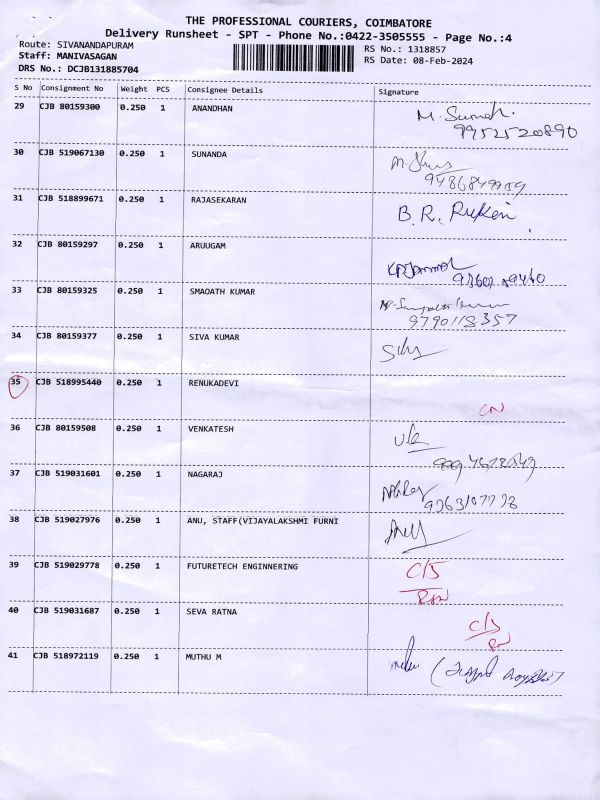 THE PROFESSIONAL COURIERS, COIMBATORE
Delivery Runsheet - SPT - Phone No.:0422-3505555 - Page No.:4
Route: SIVANANDAPURAM RS No.: 1318857
Staff: MANIVASAGAN RS Date: 08-Feb-2024
DRS No.: DCJB131885704
S No Consignment No Weight PCS Consignee Details Signature
29 CJB 80159300 0.250 1 ANANDHAN
9952520890
30 CJB 519067130 0.250 1 SUNANDA
31 CJB 518899671 0.250 1 RAJASEKARAN
B.R.
32 CJB 80159297 0.250 1 ARUUGAM
33 CJB 80159325 0.250 1 SMAOATH KUMAR
9790118357
34 CJB 80159377 0.250 1 SIVA KUMAR
35 CJB 518995440 0.250 1 RENUKADEVI
36 CJB 80159508 0.250 1 VENKATESH
37 CJB 519031601 0.250 1 NAGARAJ
38 CJB 519027976 0.250 1 ANU, STAFF(VIJAYALAKSHMI FURNI
39 CJB 519029778 0.250 1 FUTURETECH ENGINNERING
C/S
40 CJB 519031687 0.250 1 SEVA RATNA
C/S
41 CJB 518972119 0.250 1 MUTHU M